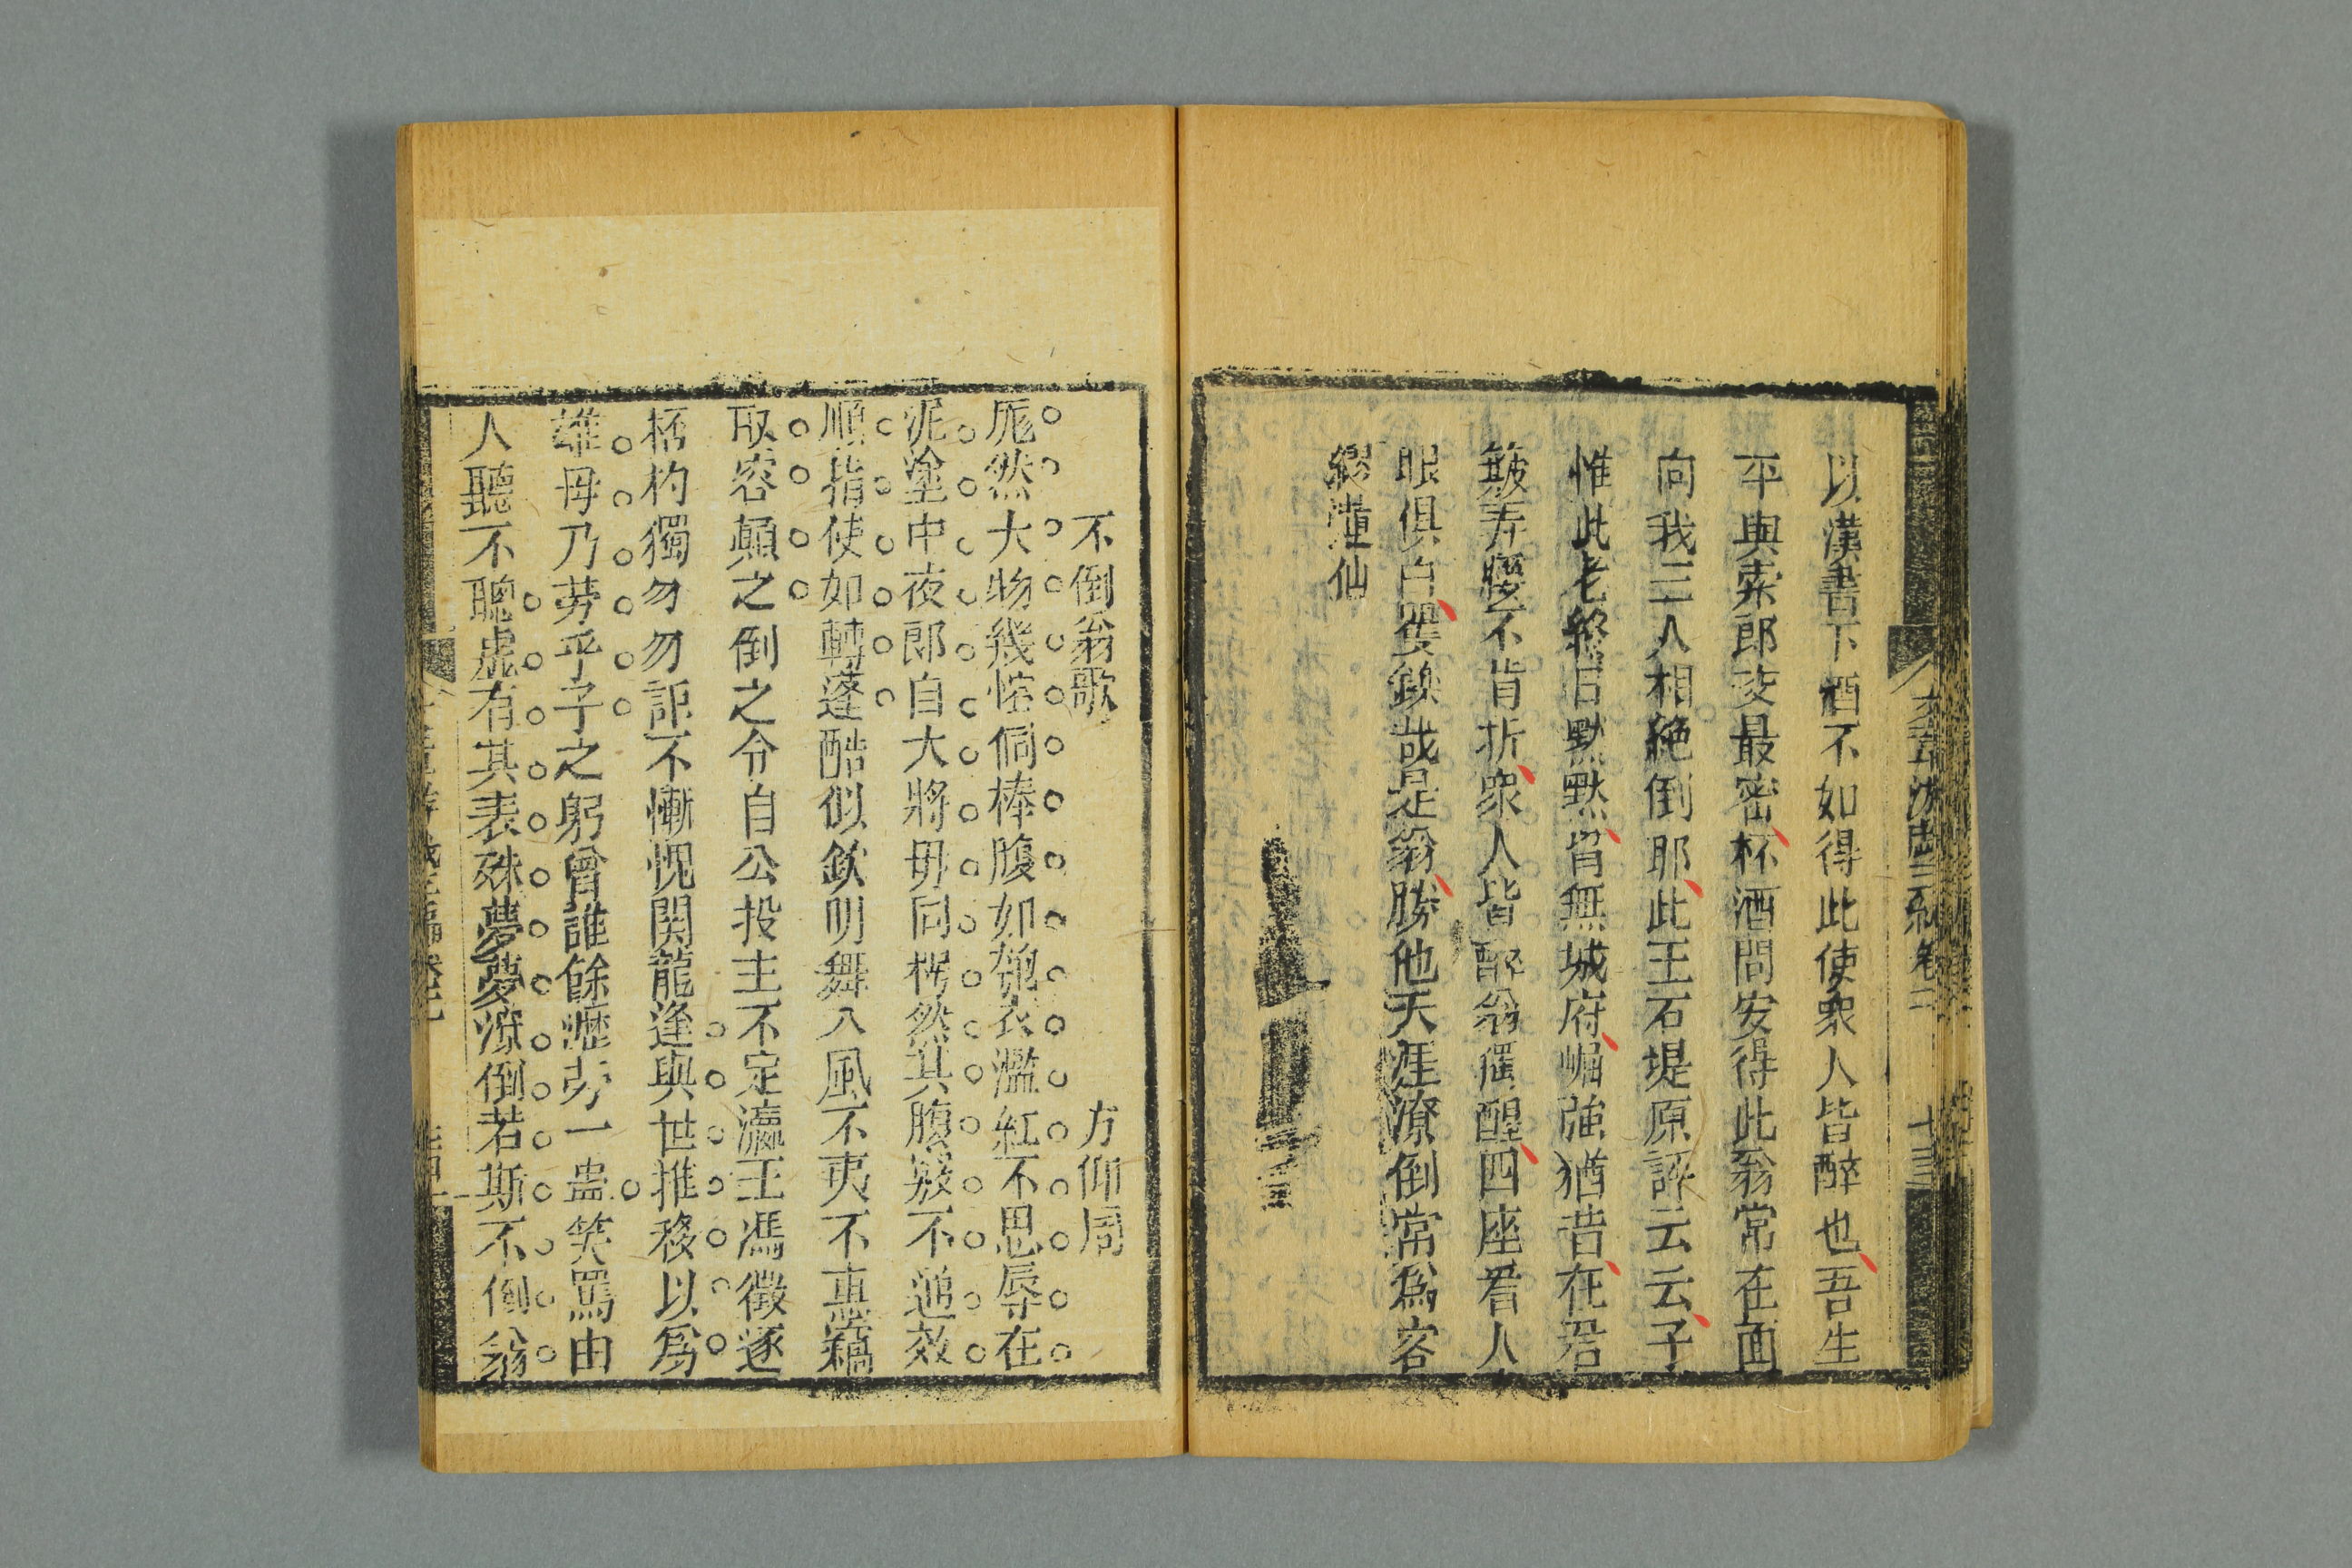 以漢書下酒不如得此使衆人皆醉也吾生
平與索郎交最密杯酒間安得此翁常在面
向我三人相絶倒耶此王石堤原評云云子
惟此老終日默默肯無城府崛強猶昔在君
簸弄腰不肯折衆人皆醉翁獨醒四座看人
眼俱白矍鑠哉是翁勝他天涯潦倒常爲客
繆蓮仙
不倒翁歌
方仰周
厖然大物幾悾侗棒腹如匏衣濫紅不思辱在
泥塗中夜郎自大將毋同枵然其腹殽不通效
順指使如轉蓬酷似欽明舞八風不夷不惠竊
取容顛之倒之令自公投主不定瀛王馮徵逐
桮杓獨勿勿詎不慚愧関龍逢與世推移以爲
雄毋乃勞乎子之躬曾誰餘瀝旁一盅笑罵由
人聽不聰虛有其表殊夢夢潦倒若斯不倒翁